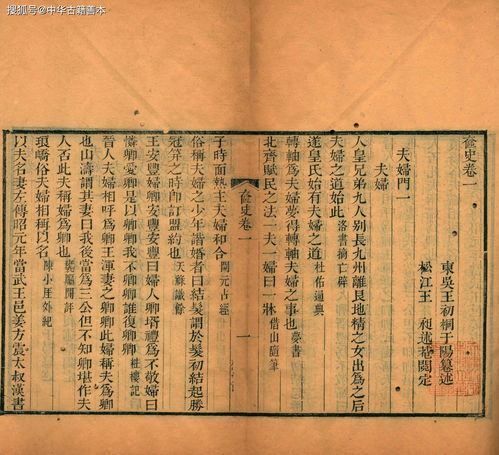 搜狐号@中华古籍善本
奩史卷一
東吳王初桐于陽纂述
松江王 昶述菴閱定
夫婦門一
夫婦
人皇兄弟九人别長九州離艮地精之女出爲之后
夫婦之道始此 洛書摘亡辟
遂皇氏始有夫婦之道 杜佑通典
轉軸爲夫婦夢得轉軸夫婦之事也 夢書
北齊賦民之法一夫一婦曰一牀 借山隨筆
奩史卷一
一
子時面熱主夫婦和合 開元占經
俗稱夫婦之少年諧婚者曰結髮謂於髮初結起勝
冠笄之時即訂盟約也 天蘇識餘
王安豐婦卿安豐安豐曰婦人卿壻禮爲不敬婦曰
憐卿愛卿是以卿卿我不卿卿誰復卿卿 粧樓記
晉人夫婦相呼爲卿王渾妻之卿卿此婦稱夫爲卿
也山濤謂其妻曰我後當爲三公但不知卿堪作夫
人否此夫稱婦爲卿也
瑣嶠俗夫婦相稱以名 陳小厓外紀
以夫名妻左傳昭元年當武王邑姜方震太叔漢書